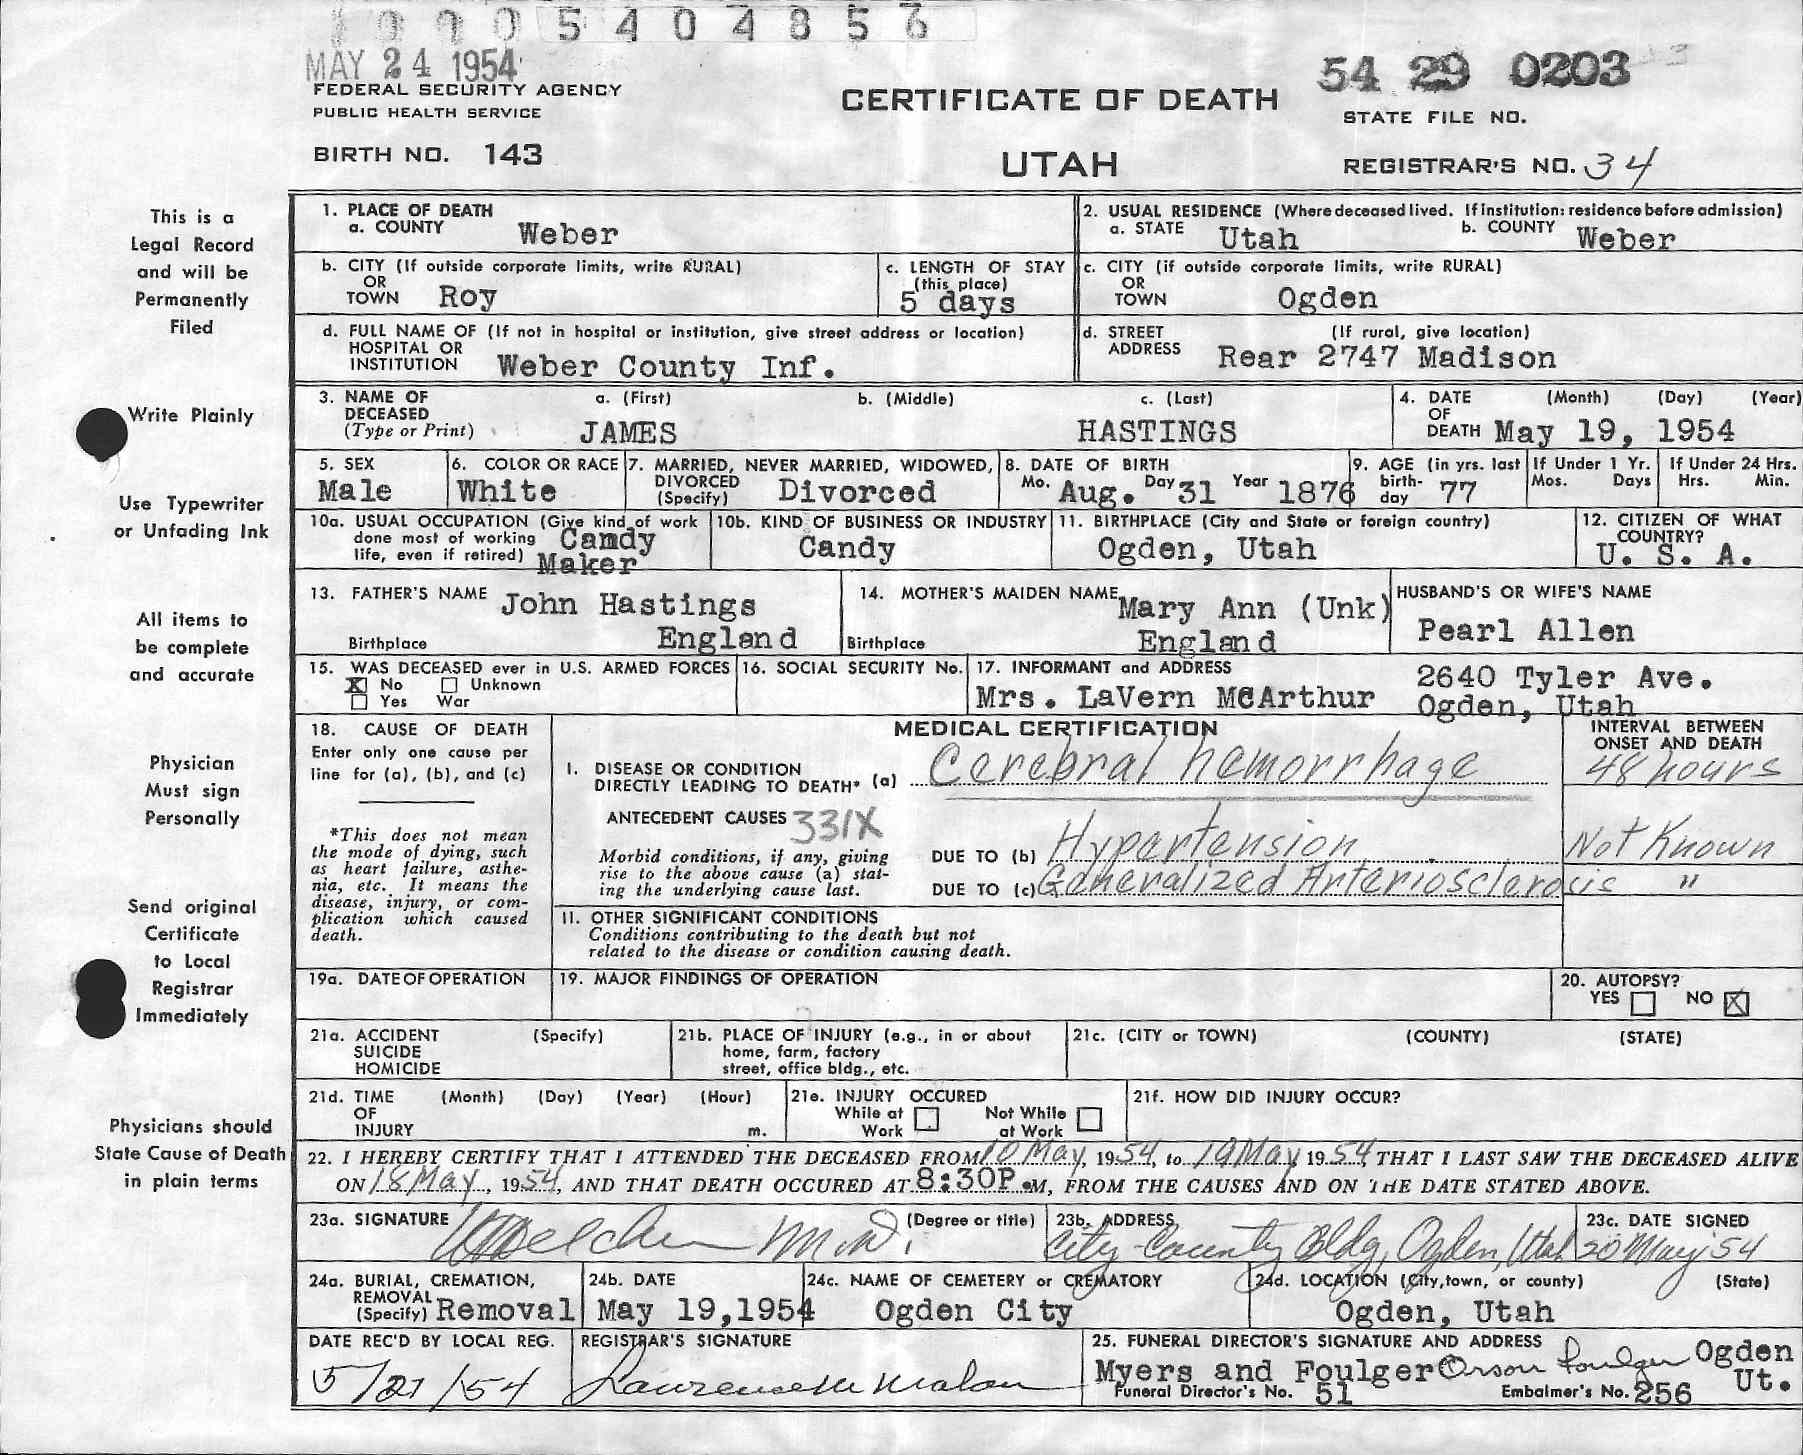 1 9 0 0 5 4 0 4 8 5 6
MAY 24 1954
FEDERAL SECURITY AGENCY
PUBLIC HEALTH SERVICE
BIRTH NO. 143
CERTIFICATE OF DEATH
UTAH
54 29 0203
STATE FILE NO.
REGISTRAR'S NO. 34
This is a
Legal Record
and will be
Permanently
Filed
Write Plainly
Use Typewriter
or Unfading Ink
All items to
be complete
and accurate
Physician
Must sign
Personally
Send original
Certificate
to Local
Registrar
Immediately
Physicians should
State Cause of Death
in plain terms
1. PLACE OF DEATH
a. COUNTY Weber
2. USUAL RESIDENCE (Where deceased lived. If institution: residence before admission)
a. STATE Utah b. COUNTY Weber
b. CITY (If outside corporate limits, write RURAL)
OR
TOWN Roy
c. LENGTH OF STAY
(this place)
5 days
c. CITY (if outside corporate limits, write RURAL)
OR
TOWN Ogden
d. FULL NAME OF (If not in hospital or institution, give street address or location)
HOSPITAL OR
INSTITUTION Weber County Inf.
d. STREET (If rural, give location)
ADDRESS Rear 2747 Madison
3. NAME OF a. (First) b. (Middle) c. (Last)
DECEASED
(Type or Print) JAMES HASTINGS
4. DATE (Month) (Day) (Year)
OF
DEATH May 19, 1954
5. SEX
Male
6. COLOR OR RACE
White
7. MARRIED, NEVER MARRIED, WIDOWED,
DIVORCED
(Specify) Divorced
8. DATE OF BIRTH
Mo. Aug. Day 31 Year 1876
9. AGE (in yrs. last
birth-
day 77
If Under 1 Yr.
Mos. Days
If Under 24 Hrs.
Hrs. Min.
10a. USUAL OCCUPATION (Give kind of work
done most of working
life, even if retired) Candy
Maker
10b. KIND OF BUSINESS OR INDUSTRY
Candy
11. BIRTHPLACE (City and State or foreign country)
Ogden, Utah
12. CITIZEN OF WHAT
COUNTRY?
U. S. A.
13. FATHER'S NAME John Hastings
Birthplace England
14. MOTHER'S MAIDEN NAME Mary Ann (Unk)
Birthplace England
HUSBAND'S OR WIFE'S NAME
Pearl Allen
15. WAS DECEASED ever in U.S. ARMED FORCES
X No Unknown
Yes War
16. SOCIAL SECURITY No.
17. INFORMANT and ADDRESS
Mrs. LaVern McArthur 2640 Tyler Ave.
Ogden, Utah
18. CAUSE OF DEATH
Enter only one cause per
line for (a), (b), and (c)
*This does not mean
the mode of dying, such
as heart failure, asthe-
nia, etc. It means the
disease, injury, or com-
plication which caused
death.
MEDICAL CERTIFICATION
I. DISEASE OR CONDITION
DIRECTLY LEADING TO DEATH* (a) Cerebral hemorrhage
ANTECEDENT CAUSES 331X
Morbid conditions, if any, giving
rise to the above cause (a) stat-
ing the underlying cause last.
DUE TO (b) Hypertension
DUE TO (c) Generalized Arteriosclerosis
INTERVAL BETWEEN
ONSET AND DEATH
48 hours
Not Known
"
II. OTHER SIGNIFICANT CONDITIONS
Conditions contributing to the death but not
related to the disease or condition causing death.
19a. DATE OF OPERATION
19. MAJOR FINDINGS OF OPERATION
20. AUTOPSY?
YES NO X
21a. ACCIDENT (Specify)
SUICIDE
HOMICIDE
21b. PLACE OF INJURY (e.g., in or about
home, farm, factory
street, office bldg., etc.
21c. (CITY or TOWN) (COUNTY) (STATE)
21d. TIME (Month) (Day) (Year) (Hour)
OF
INJURY m.
21e. INJURY OCCURED
While at Not While
Work at Work
21f. HOW DID INJURY OCCUR?
22. I HEREBY CERTIFY THAT I ATTENDED THE DECEASED FROM 10 May, 1954, to 19 May, 1954, THAT I LAST SAW THE DECEASED ALIVE
ON 18 May, 1954, AND THAT DEATH OCCURED AT 8:30P.M, FROM THE CAUSES AND ON THE DATE STATED ABOVE.
23a. SIGNATURE (Degree or title)
M.D.
23b. ADDRESS
City-County Bldg, Ogden, Utah
23c. DATE SIGNED
20 May '54
24a. BURIAL, CREMATION,
REMOVAL
(Specify) Removal
24b. DATE
May 19,1954
24c. NAME OF CEMETERY or CREMATORY
Ogden City
24d. LOCATION (City, town, or county) (State)
Ogden, Utah
DATE REC'D BY LOCAL REG.
5/21/54
REGISTRAR'S SIGNATURE
Malan
25. FUNERAL DIRECTOR'S SIGNATURE AND ADDRESS
Myers and Foulger Orson Foulger Ogden
Ut.
Funeral Director's No. 51 Embalmer's No. 256